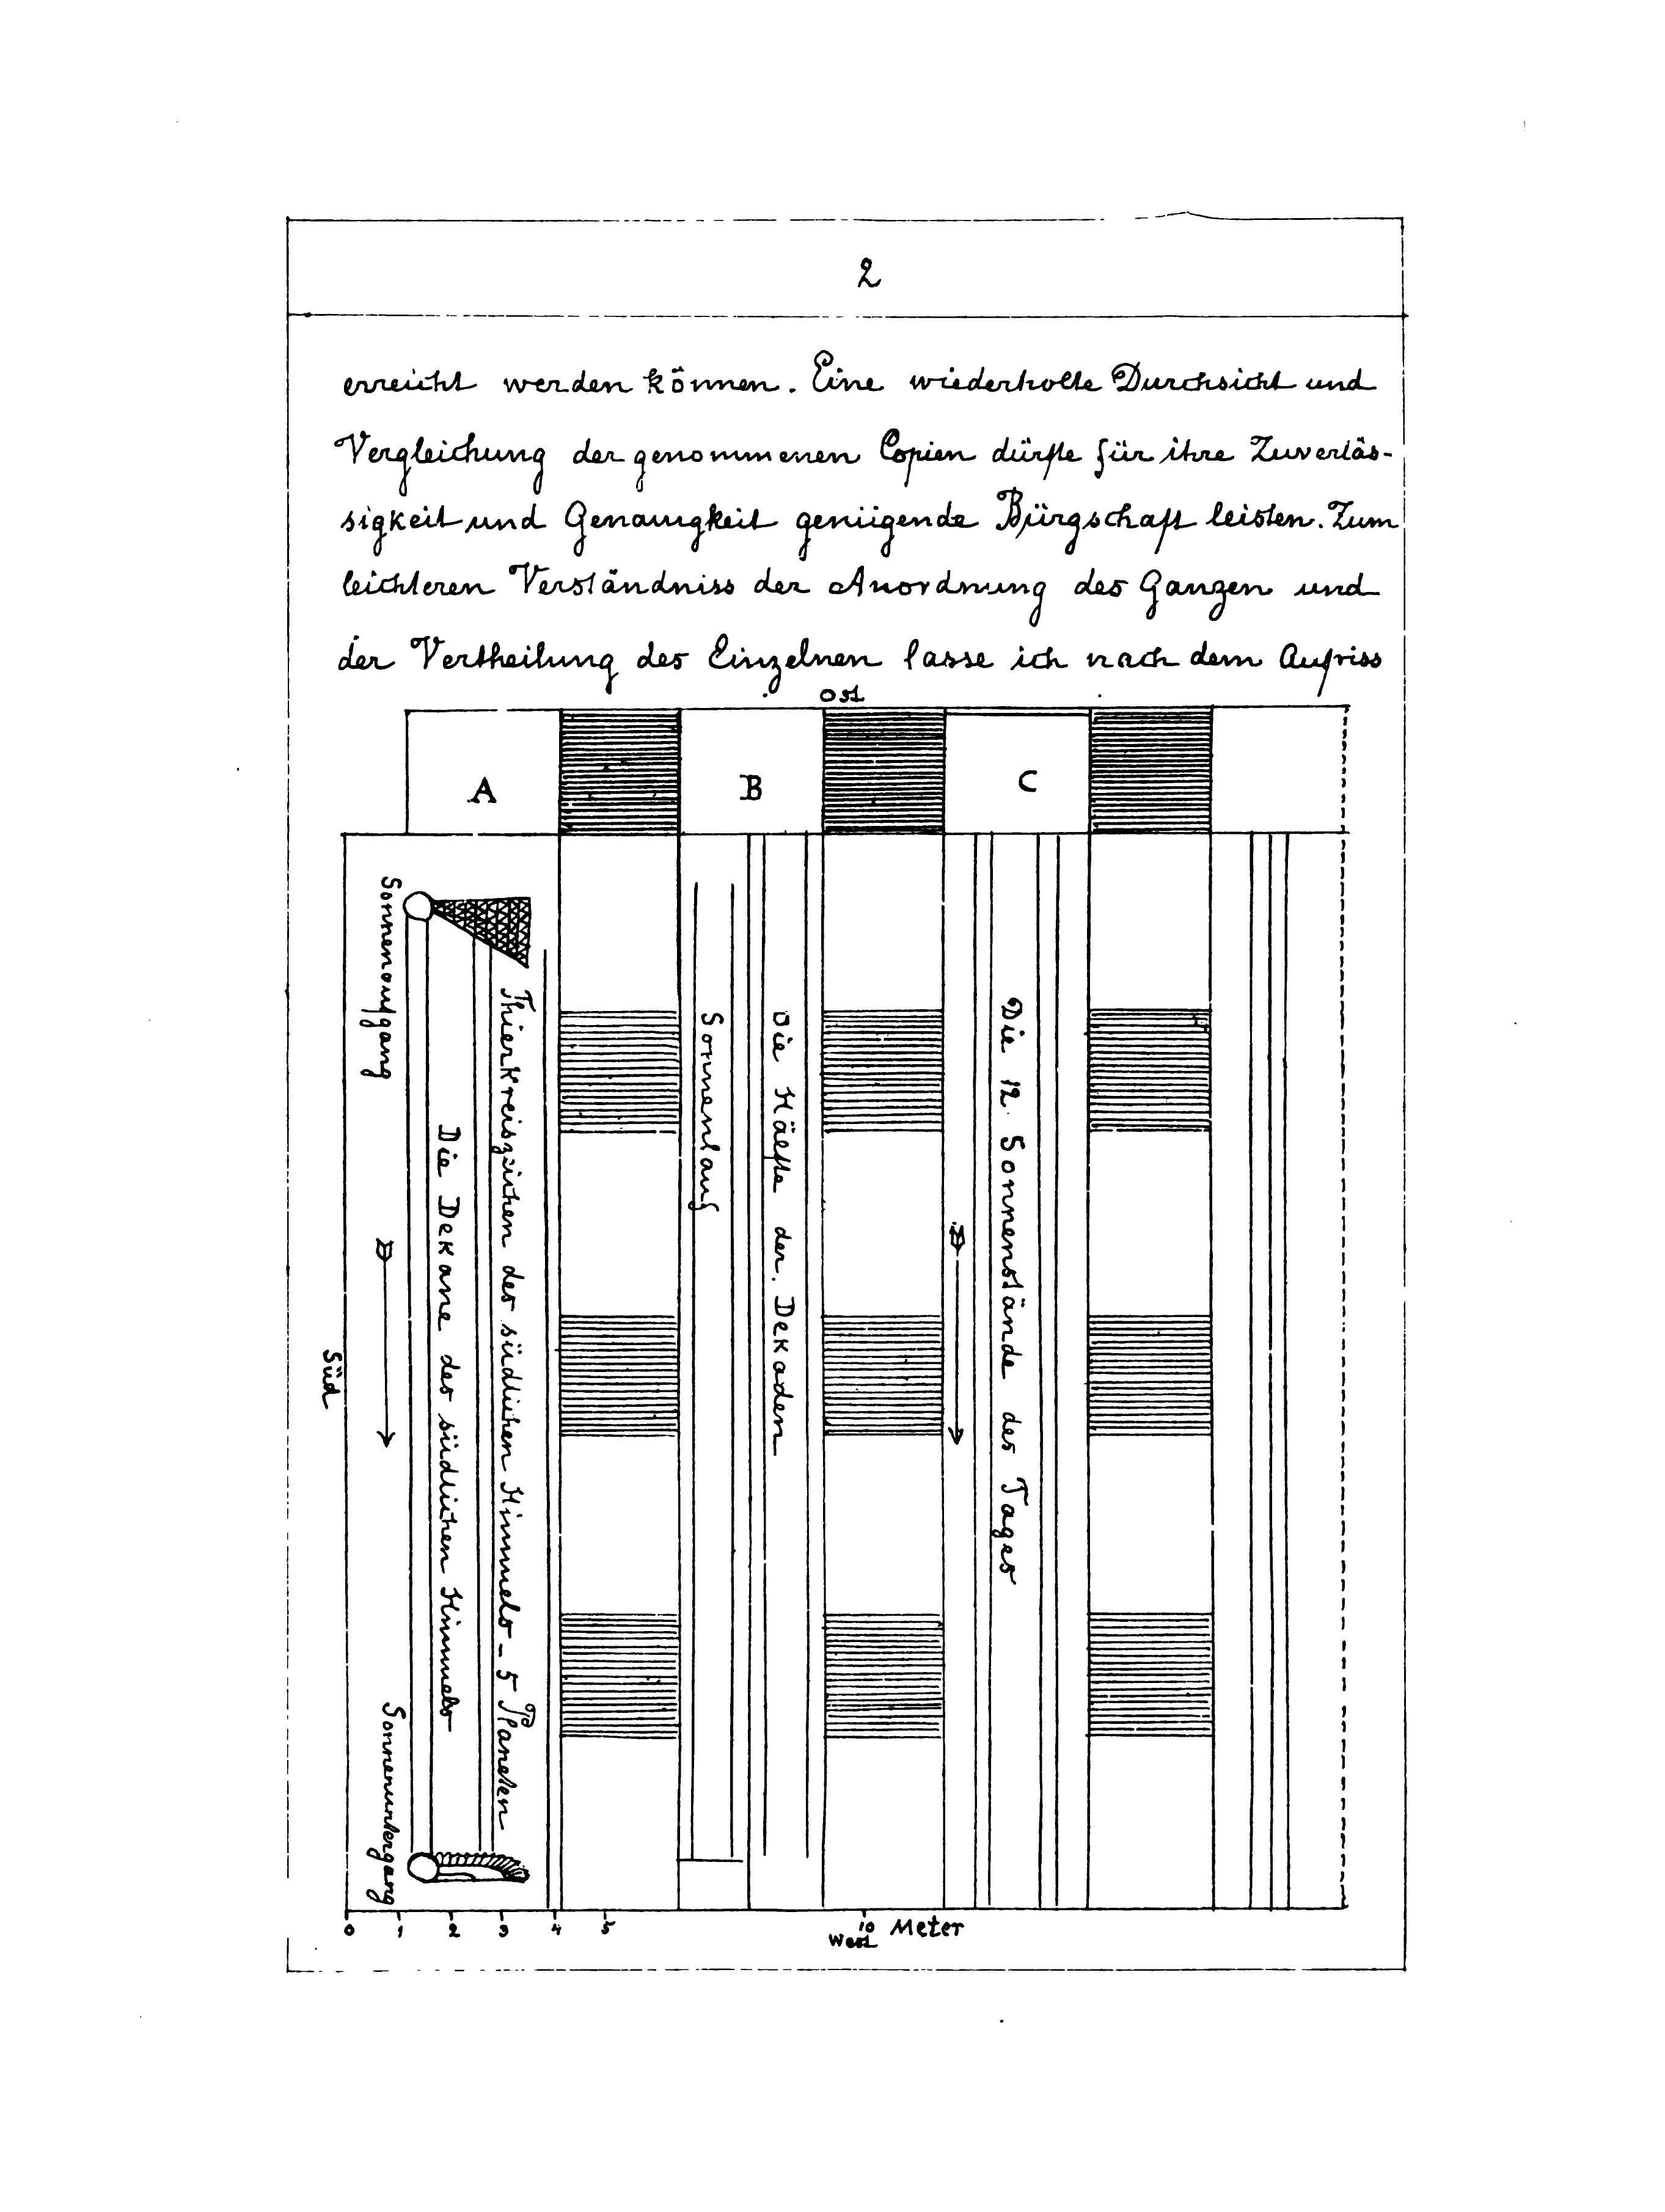 2
erreicht werden können. Eine wiederholte Durchsicht und
Vergleichung der genommenen Copien dürfte für ihre Zuverläs-
sigkeit und Genauigkeit genügende Bürgschaft leisten. Zum
leichteren Verständniss der Anordnung des Ganzen und
der Vertheilung des Einzelnen lasse ich nach dem Aufriss
Ost
A
B
C
Sonnenaufgang
Sonnenuntergang
Süd
Die Dekane des südlichen Himmels
Thierkreiszeichen des südlichen Himmels - 5 Planeten
Sonnenlauf
Die Hälfte der Dekaden
Die 12 Sonnenstände des Tages
0 1 2 3 4 5 10 Meter
West